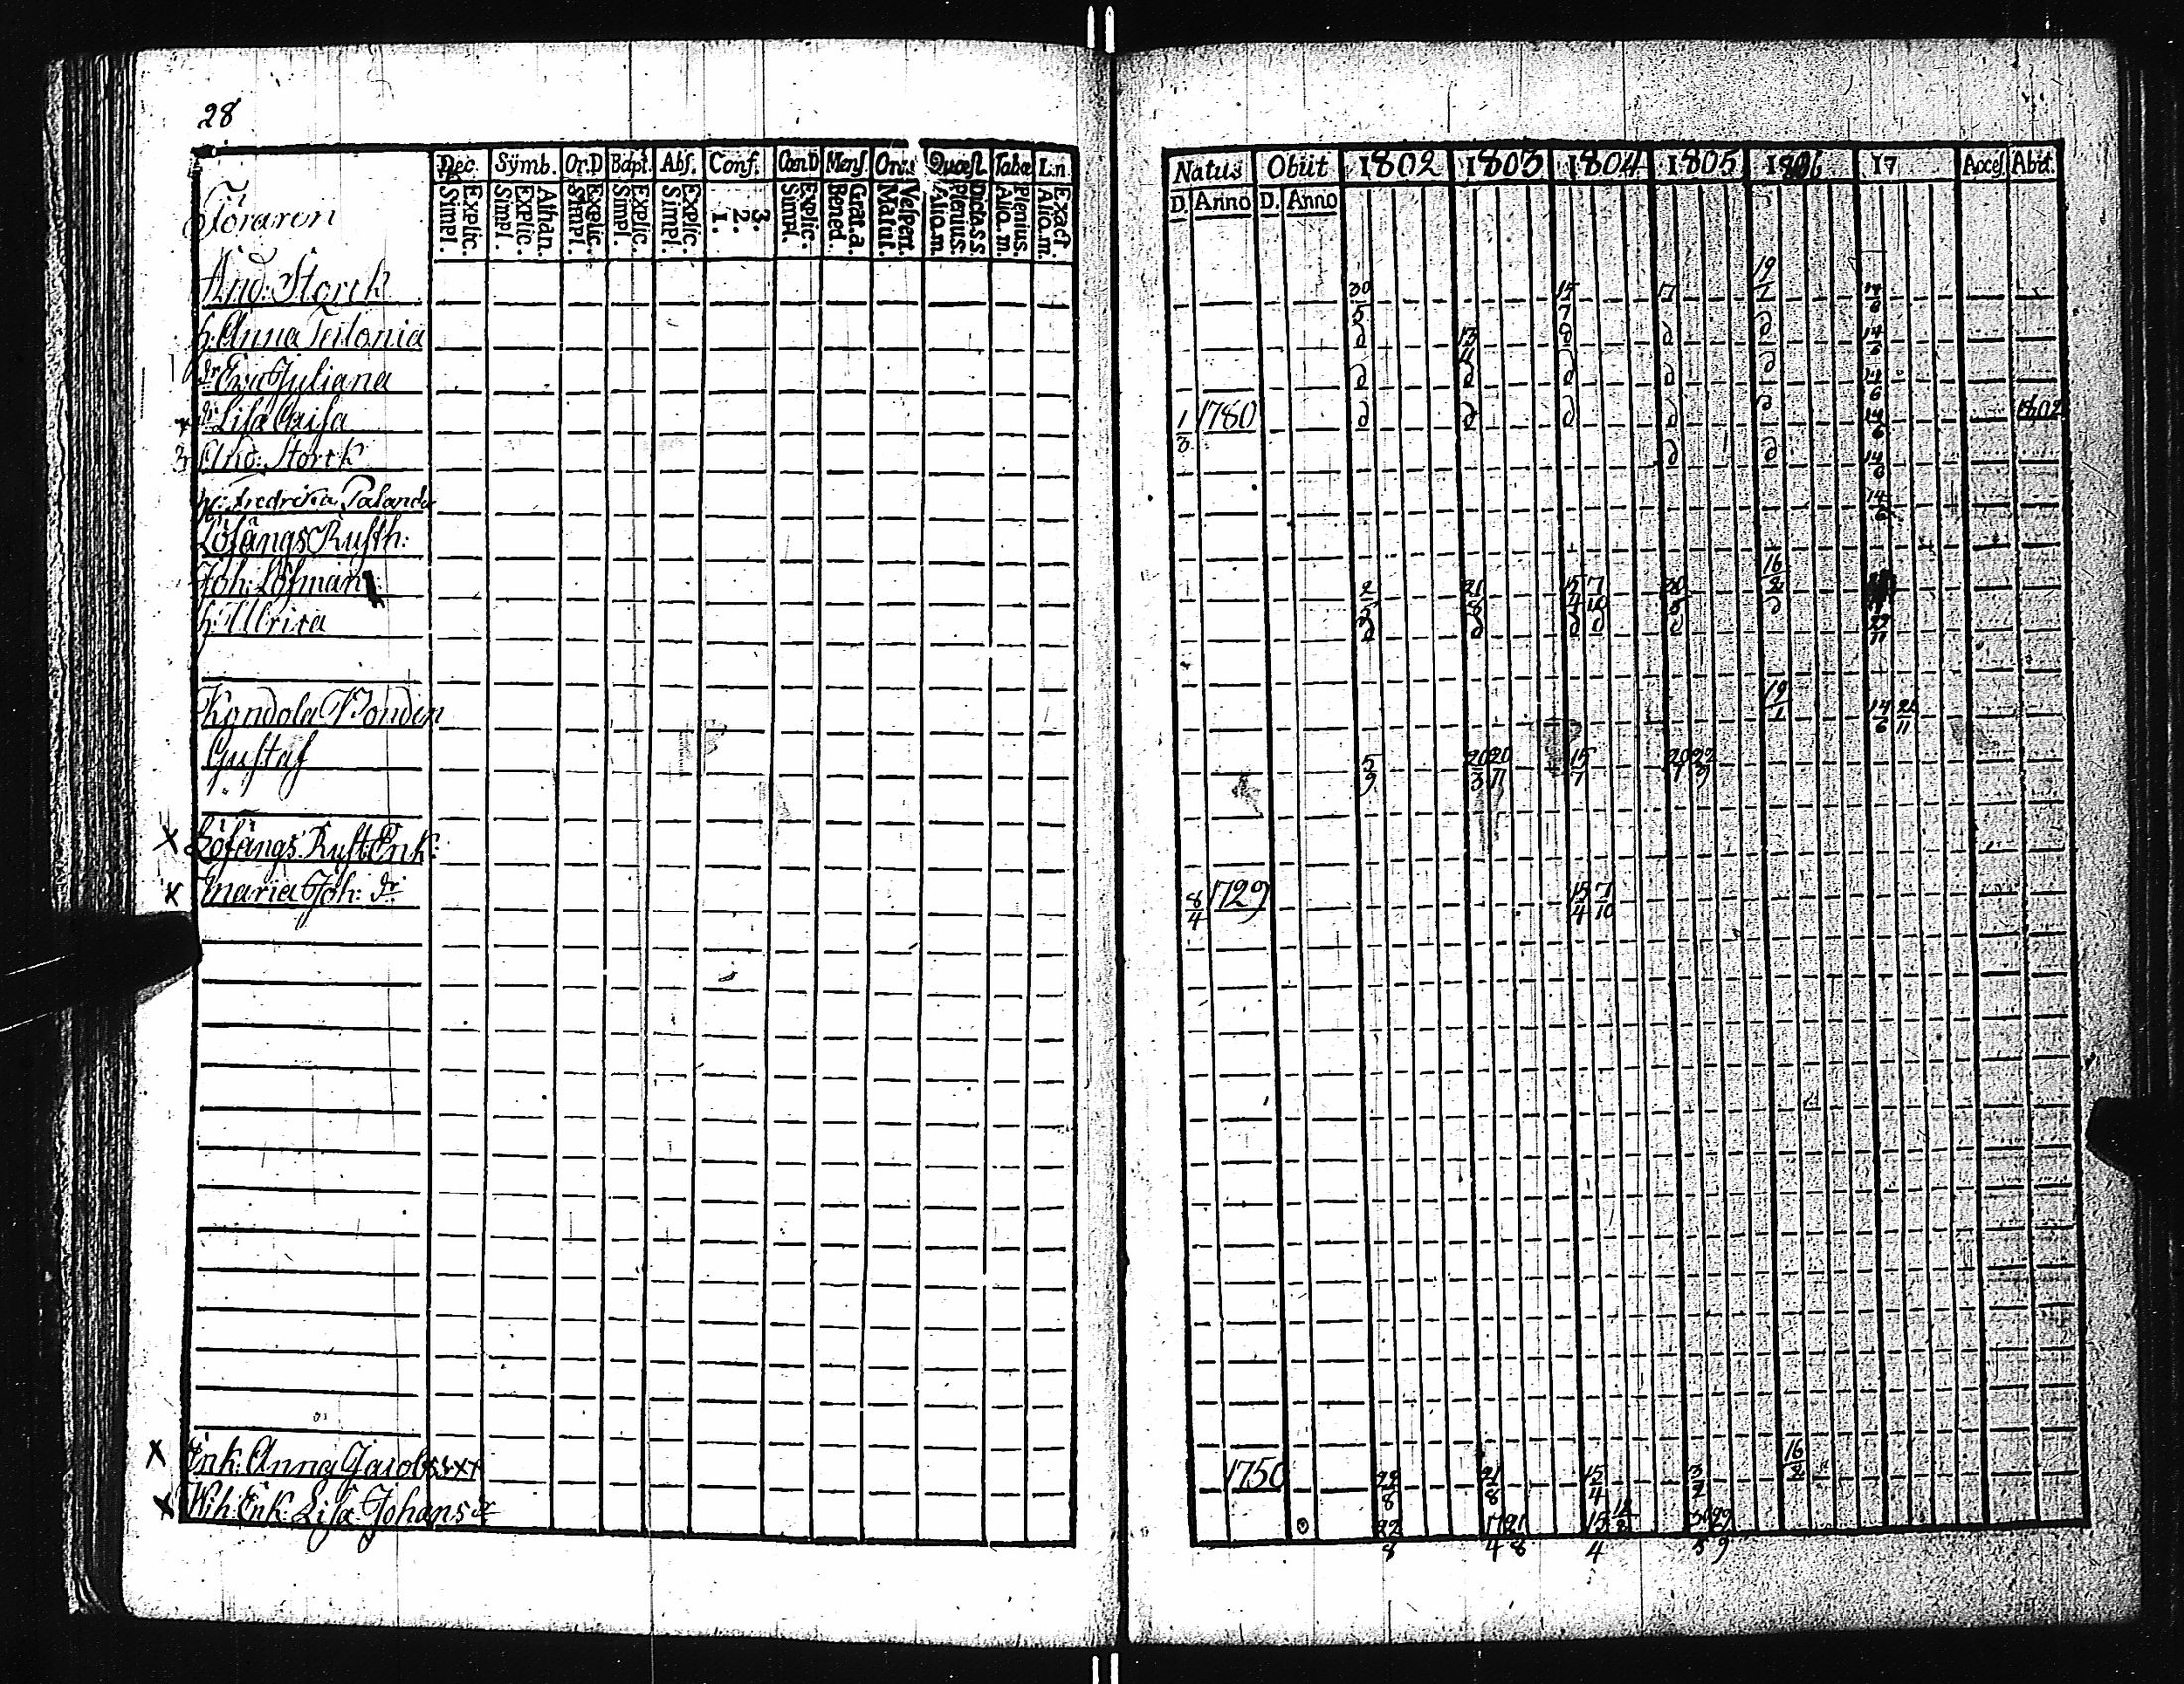 28
Dec. Symb. Or.D Bapt. Abs. Conf. Can.D Mens. Orat. Quæst. Tabæ L.n
Explic. Simpl. Athan. Explic. Simpl. Explic. Simpl. Explic. Simpl. Explic. Simpl. 3. 2. 1. Explic. Simpl. Grat.a. Bened. Vespert. Matut. Dicta.s.s. Plenius. Alio.m. Plenius. Alio.m. Exact Alio.m.
Natus Obiit 1802 1803 1804 1805 1806 17 Acces. Abit.
D. Anno D. Anno
Föraren
And: Storck 30/5 15/7 17 19/1 14/6
h. Anna 13/4 14/6
dr Eva Juliana 14/6
dr Lisa Caisa 1/3 1780 14/6 1802
And: Storck 14/6
h. Fredrika Palander 14/6
Löfångs Rusth:
Joh: Löfman 2/5 21/8 15/4 7/10 30/5 16/2
h. Ulrica 22/11
Kondola Bonden 19/1 14/6 22/11
Gustaf 5/9 20/3 20/11 15/7 20/1 22/9
X Löfångs Rust: Enk:
X Maria Joh: dr 8/4 1729 15/4 7/10
X Enk: Anna Jacobs 1750 22/8 21/8 15/4 16/2
X Wih: Enk: Lisa Johans dr 22/8 17/4 21/8 15/4 30/5 29/9